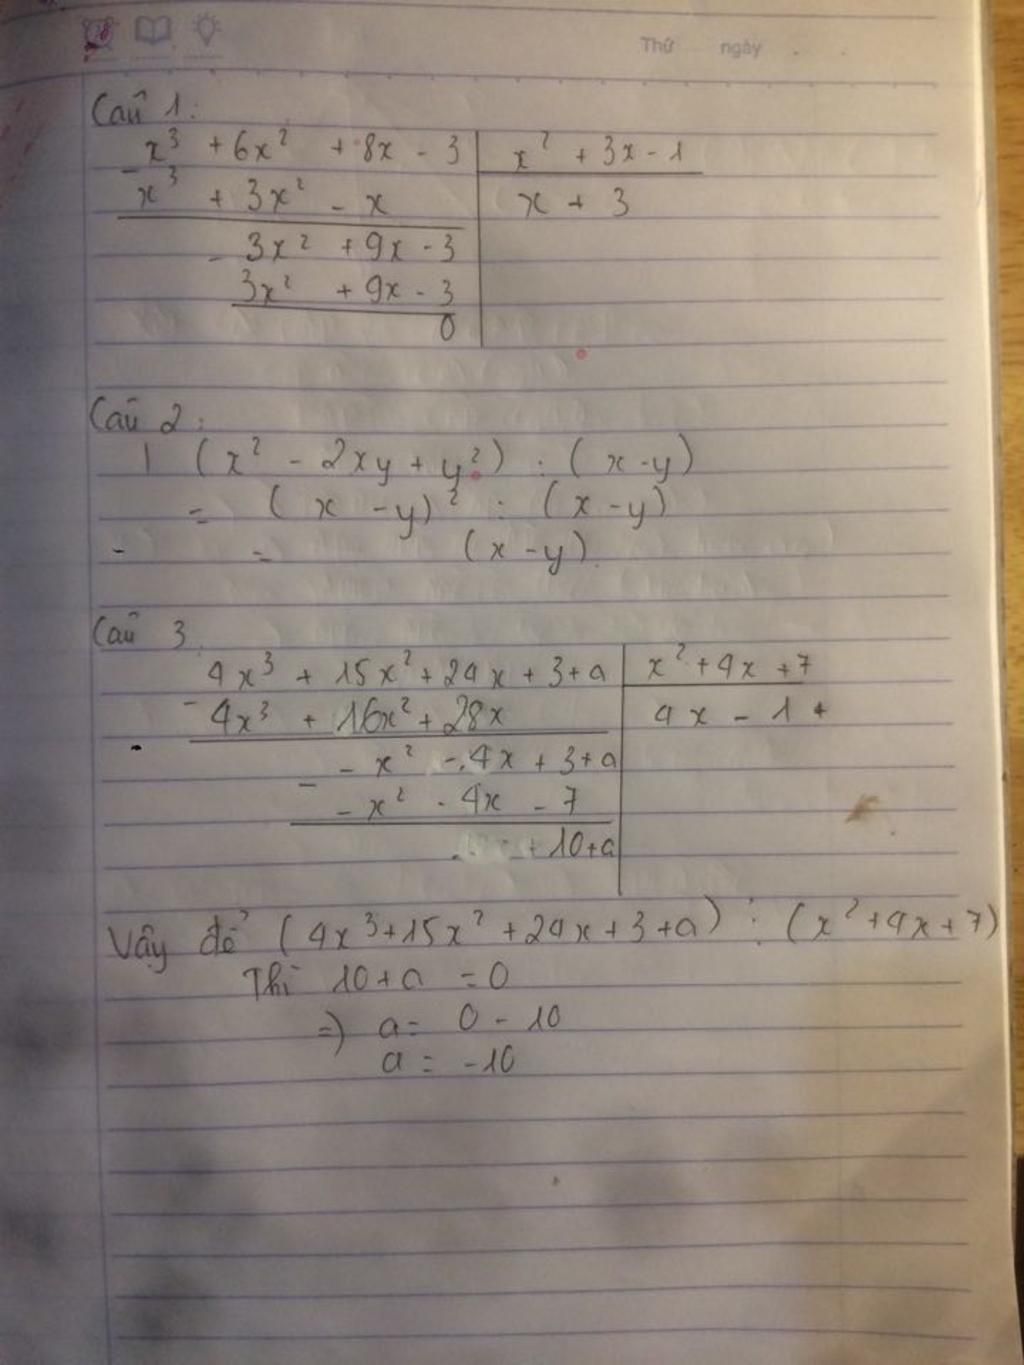 Thứ ngày . .
Câu 1:
x³ + 6x² + 8x - 3 | x² + 3x - 1
- x³ + 3x² - x | x + 3
3x² + 9x - 3
- 3x² + 9x - 3
0
Câu 2:
(x² - 2xy + y²) : (x - y)
= (x - y)² : (x - y)
= (x - y).
Câu 3
4x³ + 15x² + 24x + 3 + a | x² + 4x + 7
- 4x³ + 16x² + 28x | 4x - 1
- x² - 4x + 3 + a
- - x² - 4x - 7
+ 10 + a
Vậy để (4x³ + 15x² + 24x + 3 + a) ⋮ (x² + 4x + 7)
Thì 10 + a = 0
=) a = 0 - 10
a = -10